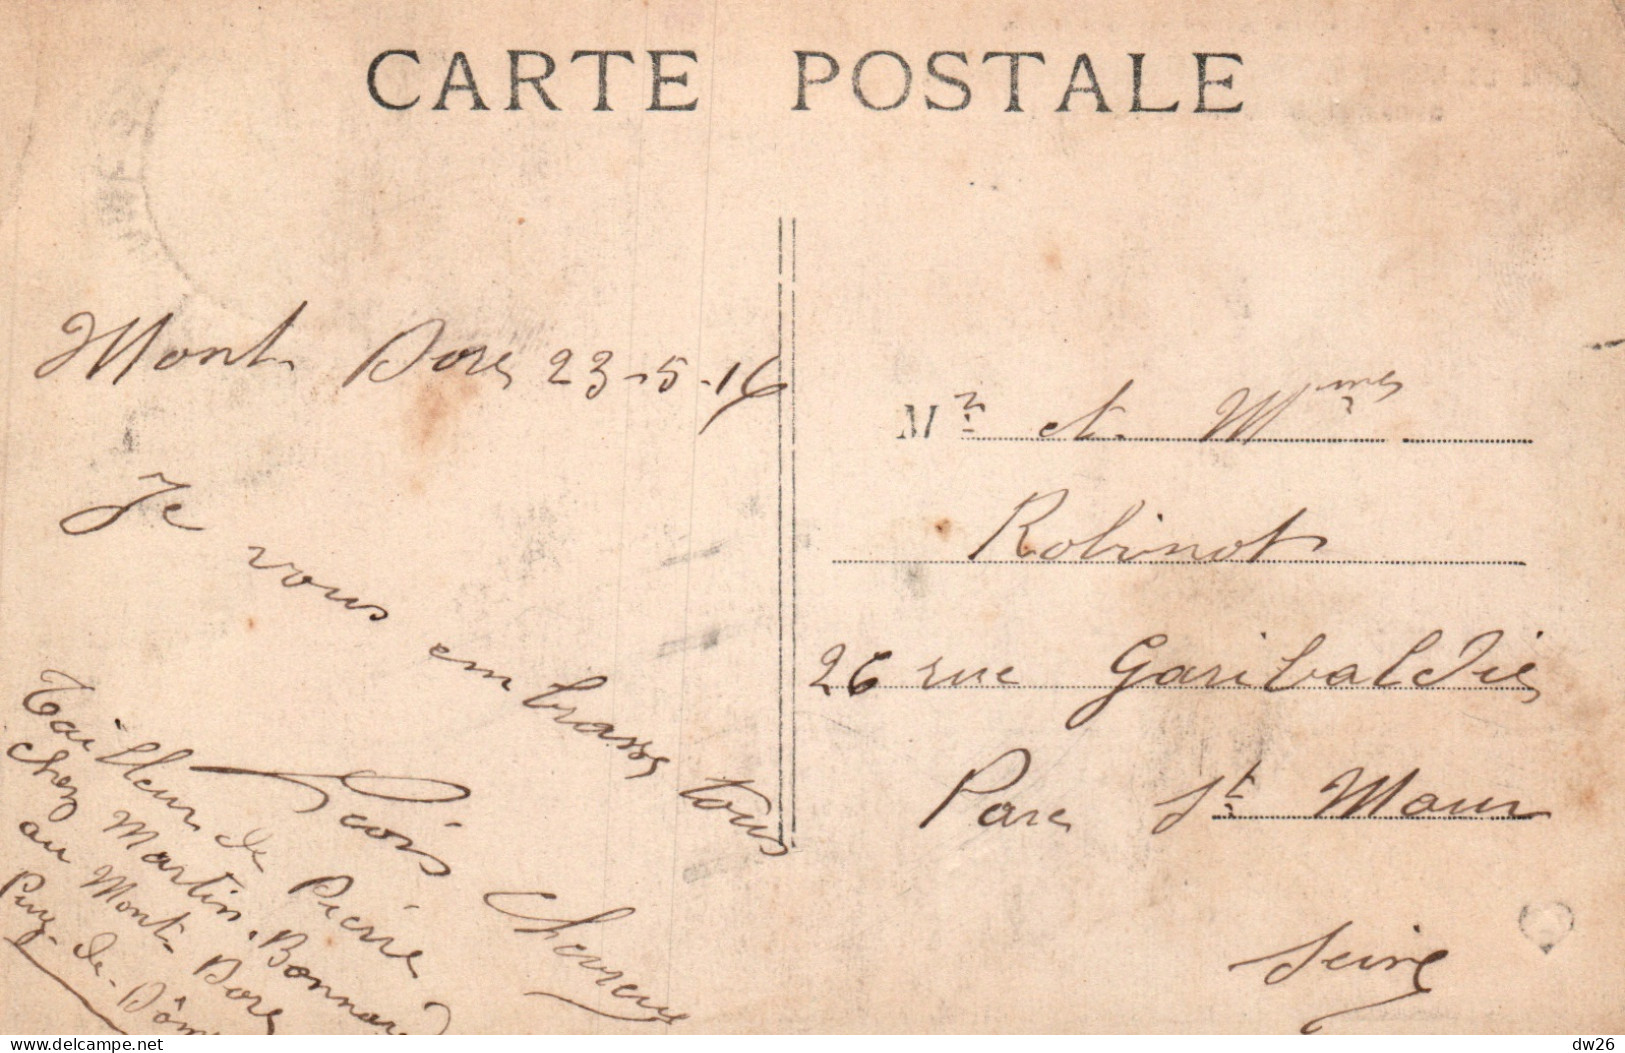 CARTE POSTALE
Mont Dore 23-5-14
Je vous embrasse tous
Tailleur de Pierre
chez Martin. Bonnard
au Mont-Dore
Puy-de-Dôme
Mr et Mmes
Robinot
26 rue Garibaldie
Parc St Maur
Seine
dw26
delcampe.net